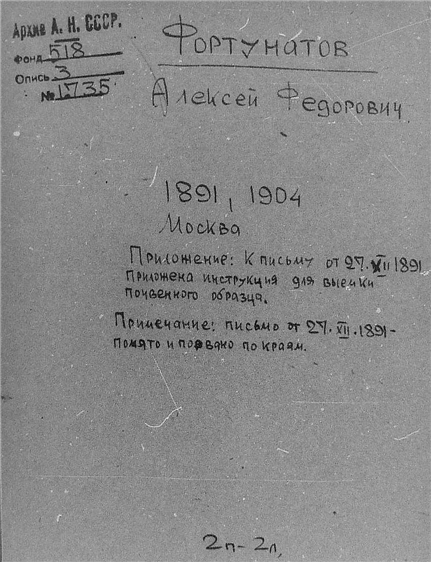 Архив А. Н. СССР.
Фонд 518
Опись 3
№ 1735
Фортунатов
Алексей Федорович
1891, 1904
Москва
Приложение: К письму от 27.XII 1891
приложена инструкция для выемки
почвенного образца.
Примечание: письмо от 27.XII.1891-
помято и порвано по краям.
2п-2л,